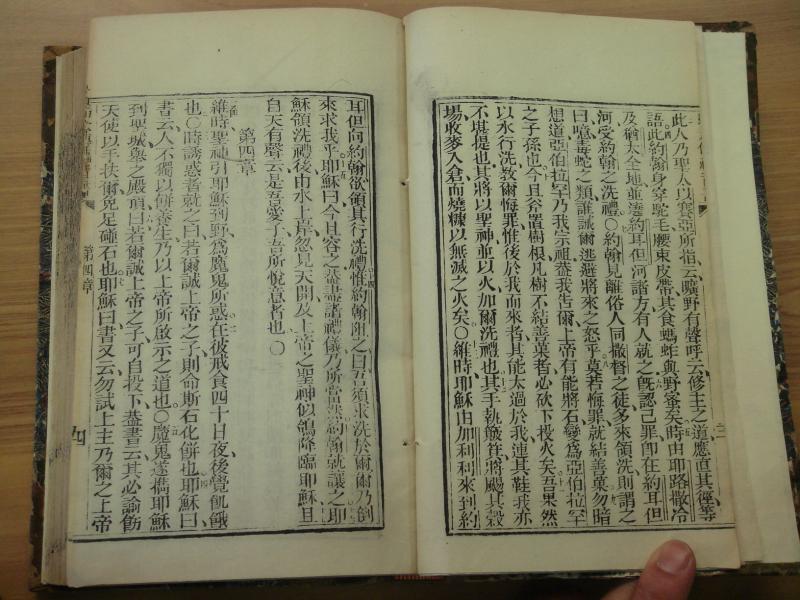 此人乃聖太以賽亞所指云曠野有聲呼云修主之道應直其徑等
語此約翰身穿駝毛腰束皮帶其食螞蚱與野蜜矣時由耶路撒冷
及猶太全地並邊約耳但河諸方有人就之旣認己罪卽在約耳但
河受約翰之洗禮〇約翰見離俗人同撒督之徒多來領洗則謂之
曰噫毒蛇之類誰誠爾逃避將來之怒乎莫若悔罪就結善菓勿暗
想道亞伯拉罕乃我宗祖葢我告爾上帝有能將石變爲亞伯拉罕
之子孫也今且斧置樹根凡樹不結善菓者必砍下投火矣吾果然
以水行洗教爾悔罪惟後於我而來者其能太過於我連其鞋我亦
不堪提也其將以聖神並以火加爾洗禮也其手執簸箕將颺其穀
場收麥入倉而燒糠以無滅之火矣〇維時耶穌由加利利來到約
耳但向約翰欲領其行洗禮惟約翰阻之曰吾須求洗於爾爾乃倒
來求我乎耶穌曰今且容之葢盡諸禮儀乃所當然約翰就讓之耶
穌領洗禮後由水上岸忽見天開及上帝之聖神似鴿降臨耶穌且
自天有聲云是吾愛子吾所悅意者也〇
第四章
維時聖神引耶穌到野爲魔鬼所惑在彼戒食四十日夜後覺飢餓
也〇時誘惑者就之曰若爾誠上帝之子則命斯石化餅也耶穌曰
書云人不獨以餅養生乃以上帝所啟示之道也〇魔鬼遂攜耶穌
到聖城與之殿頂曰若爾誠上帝之子可自投下葢書云其必諭飭
天使以手扶爾免足碰石也耶穌曰書又云勿試上主乃爾之上帝
第四章
四